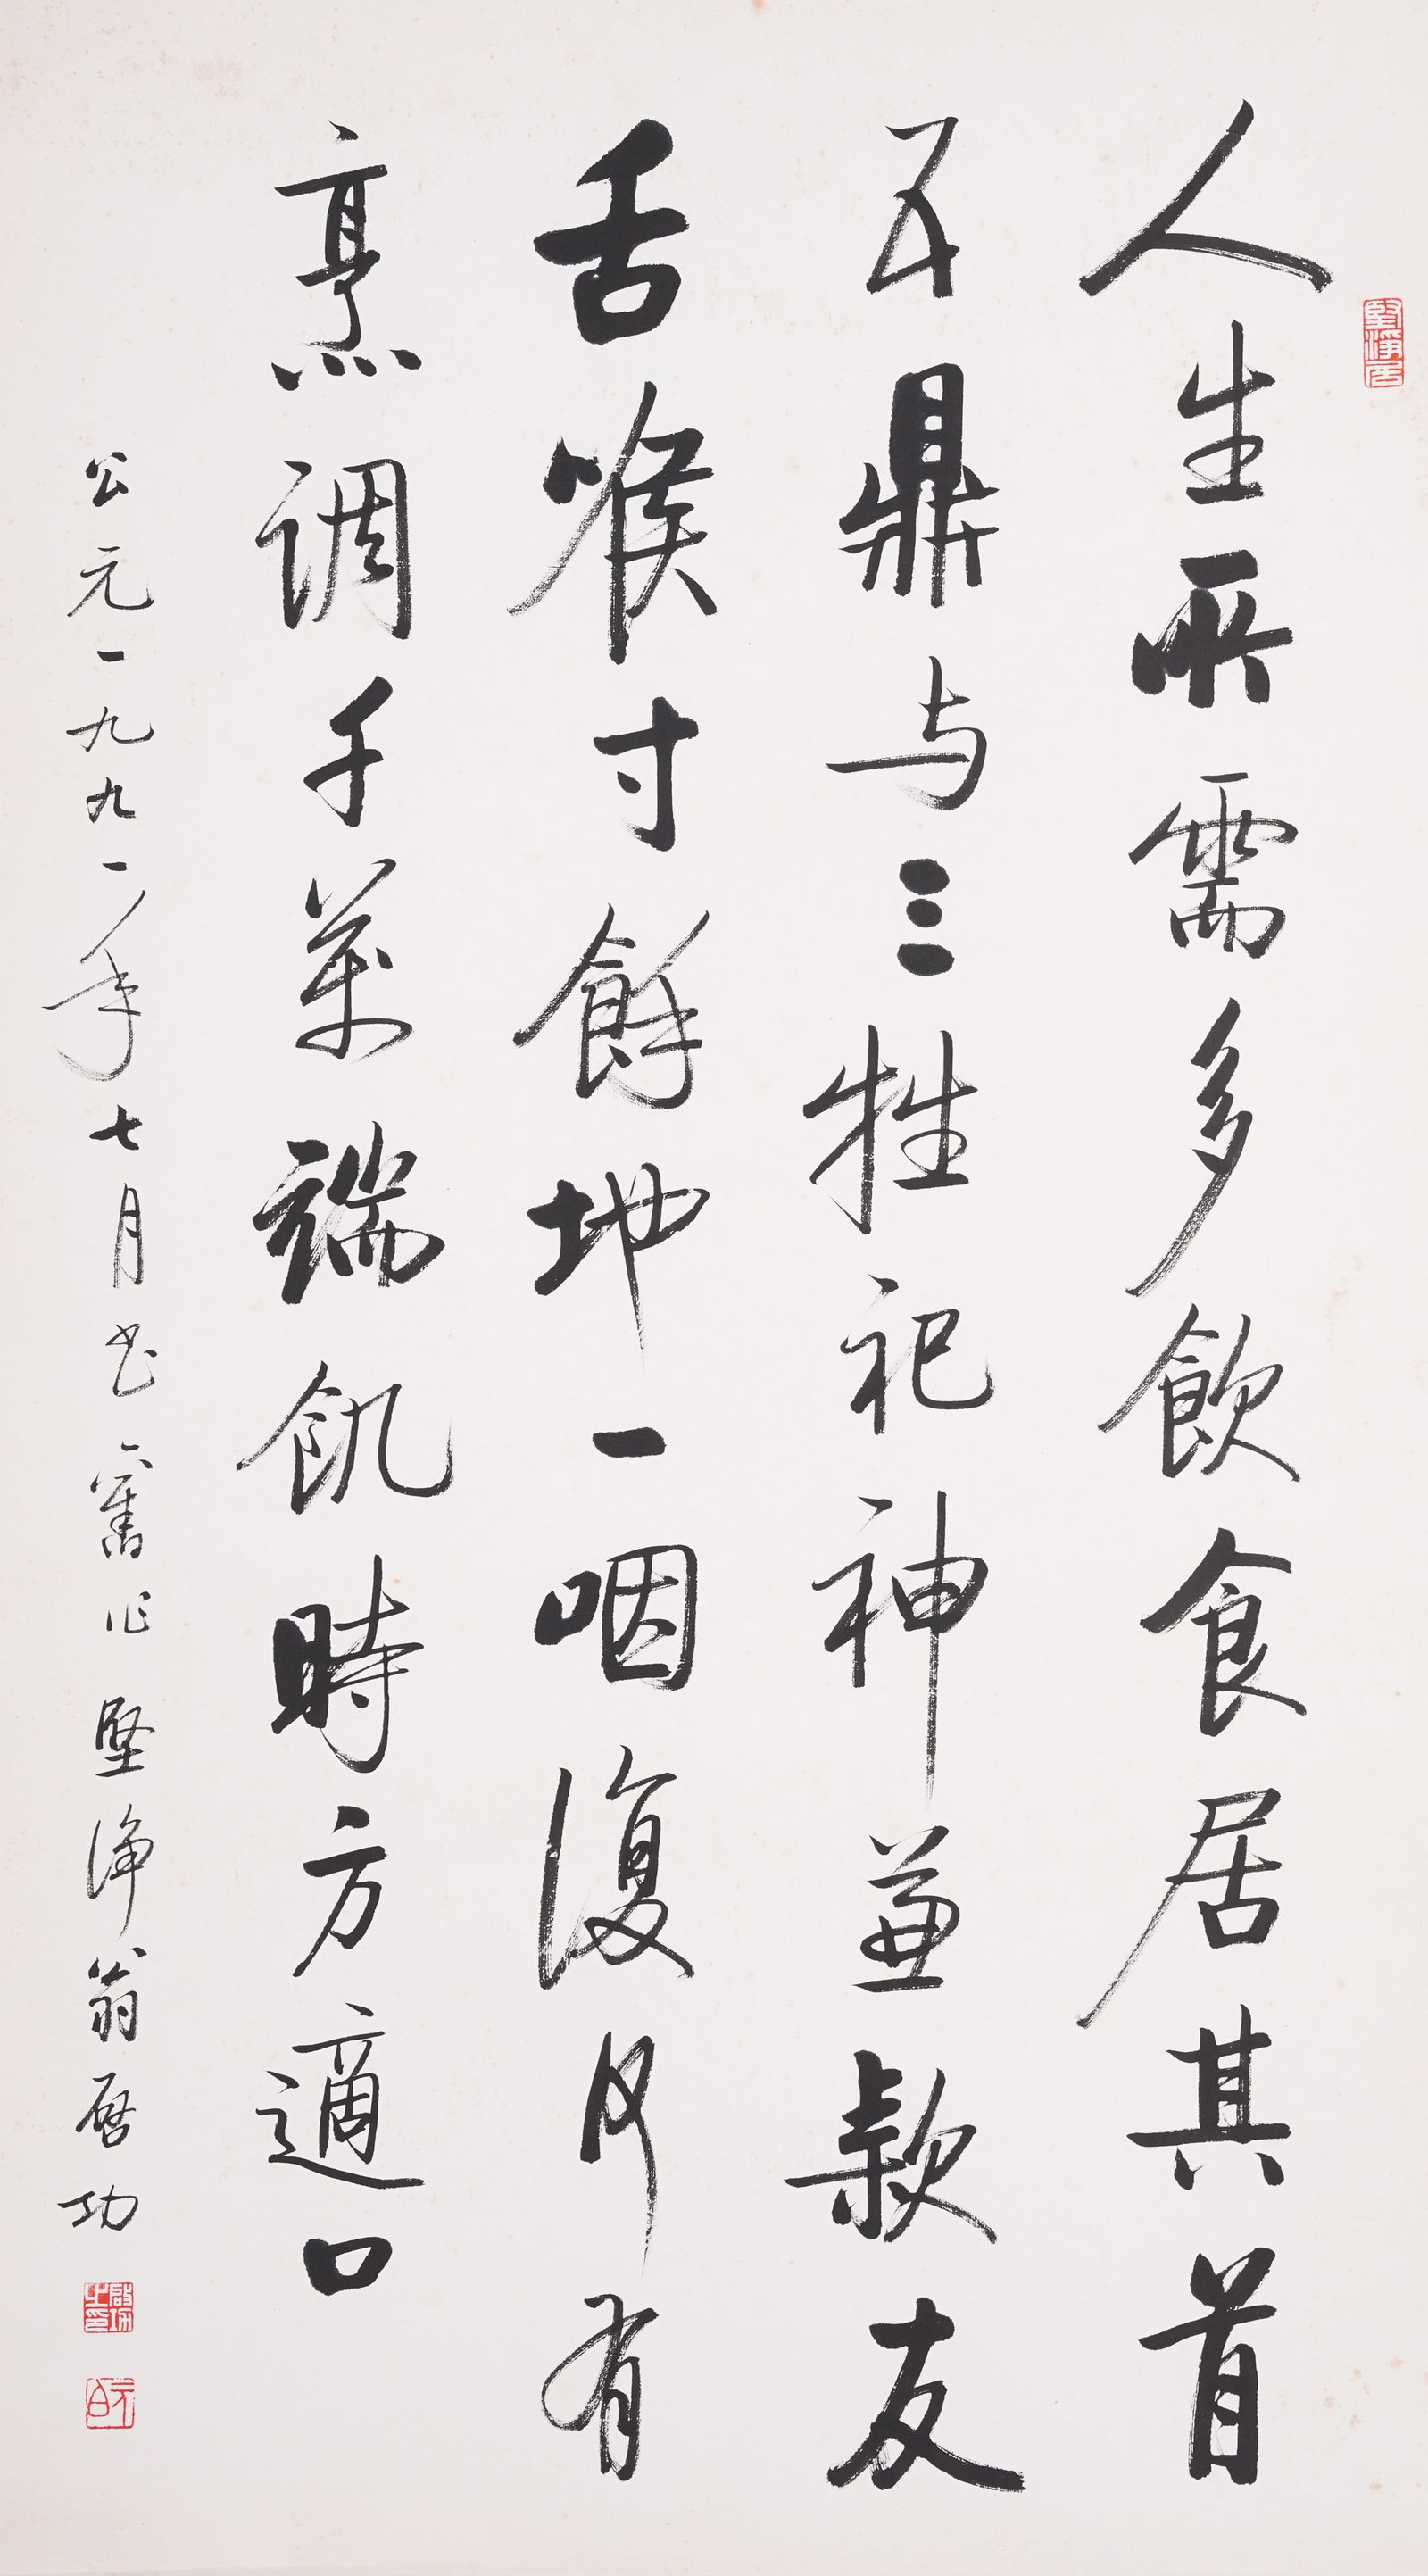 堅淨居
人生所需多飲食居其首
五鼎与三牲祀神兼款友
舌喉寸餘地一咽復何有
烹調千萬端飢時方適口
公元一九九一年七月書舊作 堅淨翁啓功
啟功之印
元白